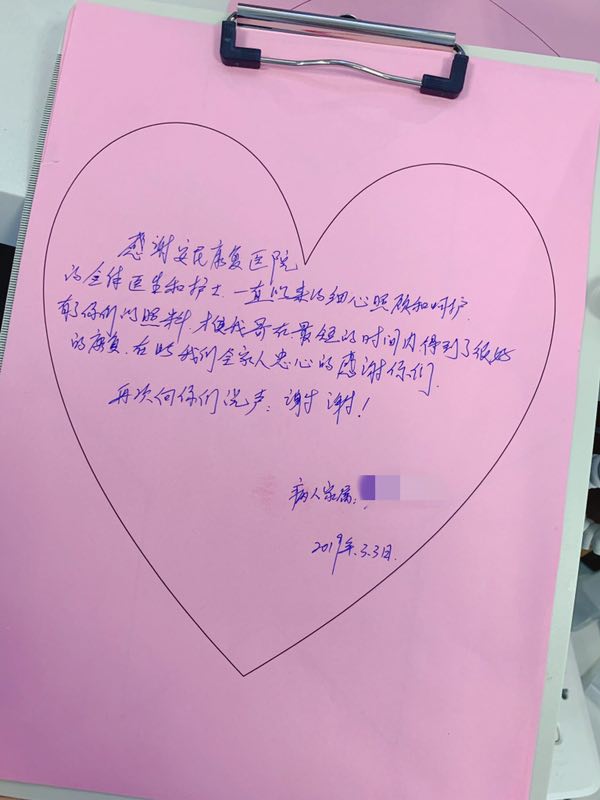 感谢安尼康复医院
的全体医生和护士.一直以来的细心照顾和呵护.
有了你们的照料.才使我哥在.最短的时间内得到了很好
的康复.在此我们全家人忠心的感谢你们.
再次向你们说声:谢谢!
病人家属:
2019年.3.3日.